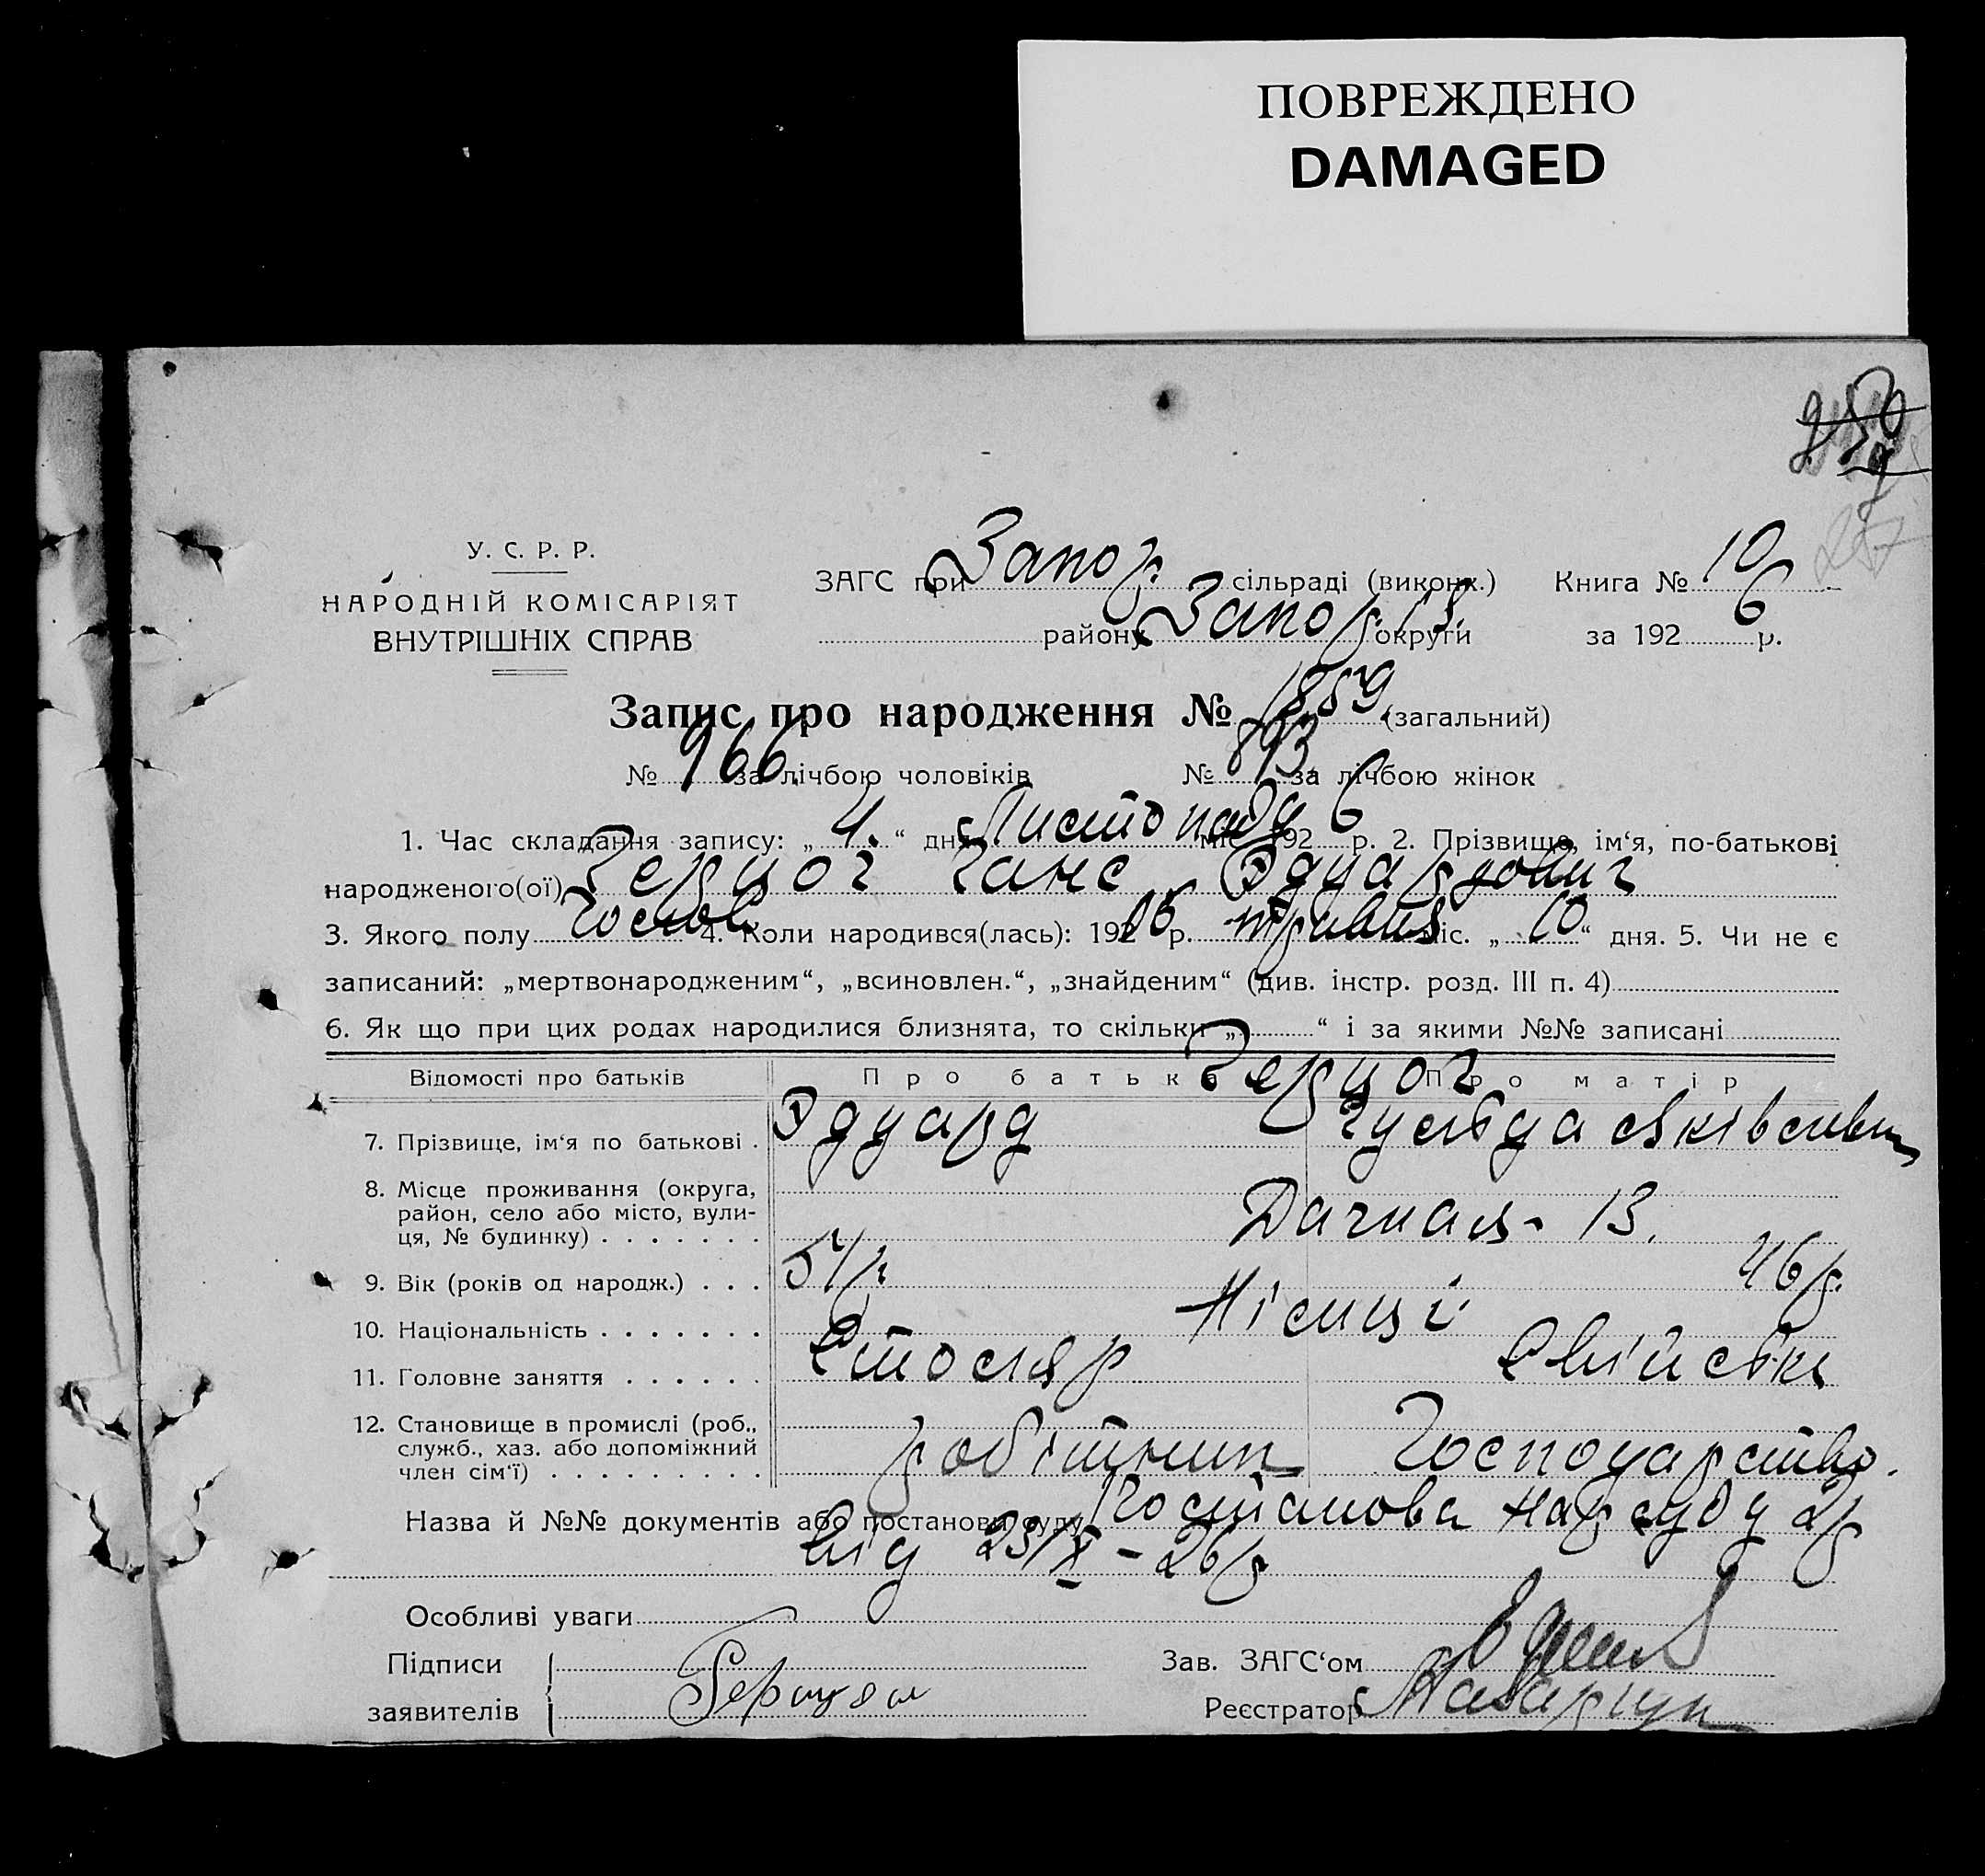 ПОВРЕЖДЕНО
DAMAGED
У. С. Р. Р.
НАРОДНІЙ КОМІСАРІЯТ
ВНУТРІШНІХ СПРАВ
ЗАГС при Запор. сільраді (виконк.) Книга № 10
району Запор. округи за 1926 р.
Запис про народження № 1859 (загальний)
№ 966 за лічбою чоловіків № 893 за лічбою жінок
1. Час складання запису: „ 4. “ дня Листопаду міс. 1926 р. 2. Прізвище, ім‘я, по-батькові
народженого(ої) Герцог Ганс Эдуардович
3. Якого полу 4. Коли народився(лась): 192 р. травня міс. „ 10 “ дня. 5. Чи не є
записаний: „мертвонародженим“, „всиновлен.“, „знайденим“ (див. інстр. розд. III п. 4)
6. Як що при цих родах народилися близнята, то скільки „ “ і за якими №№ записані
Відомості про батьків Про батька Про матір
Герцог
7. Прізвище, ім‘я по батькові . Эдуард
8. Місце проживання (округа,
район, село або місто, вули-
ця, № будинку) . . . . . . . Дачная - 13.
9. Вік (років од народж.) . . . 46р.
10. Національність . . . . . . . Німці
11. Головне заняття . . . . . . Столяр Свійське
12. Становище в промислі (роб.,
служб., хаз. або допоміжний
член сім‘ї) . . . . . . . . . робітник Господарство.
Назва й №№ документів або постанови суду Постанова Нарсуду 2р
від 23/X - 26р
Особливі уваги
Підписи
заявителів
Зав. ЗАГС‘ом
Реєстратор